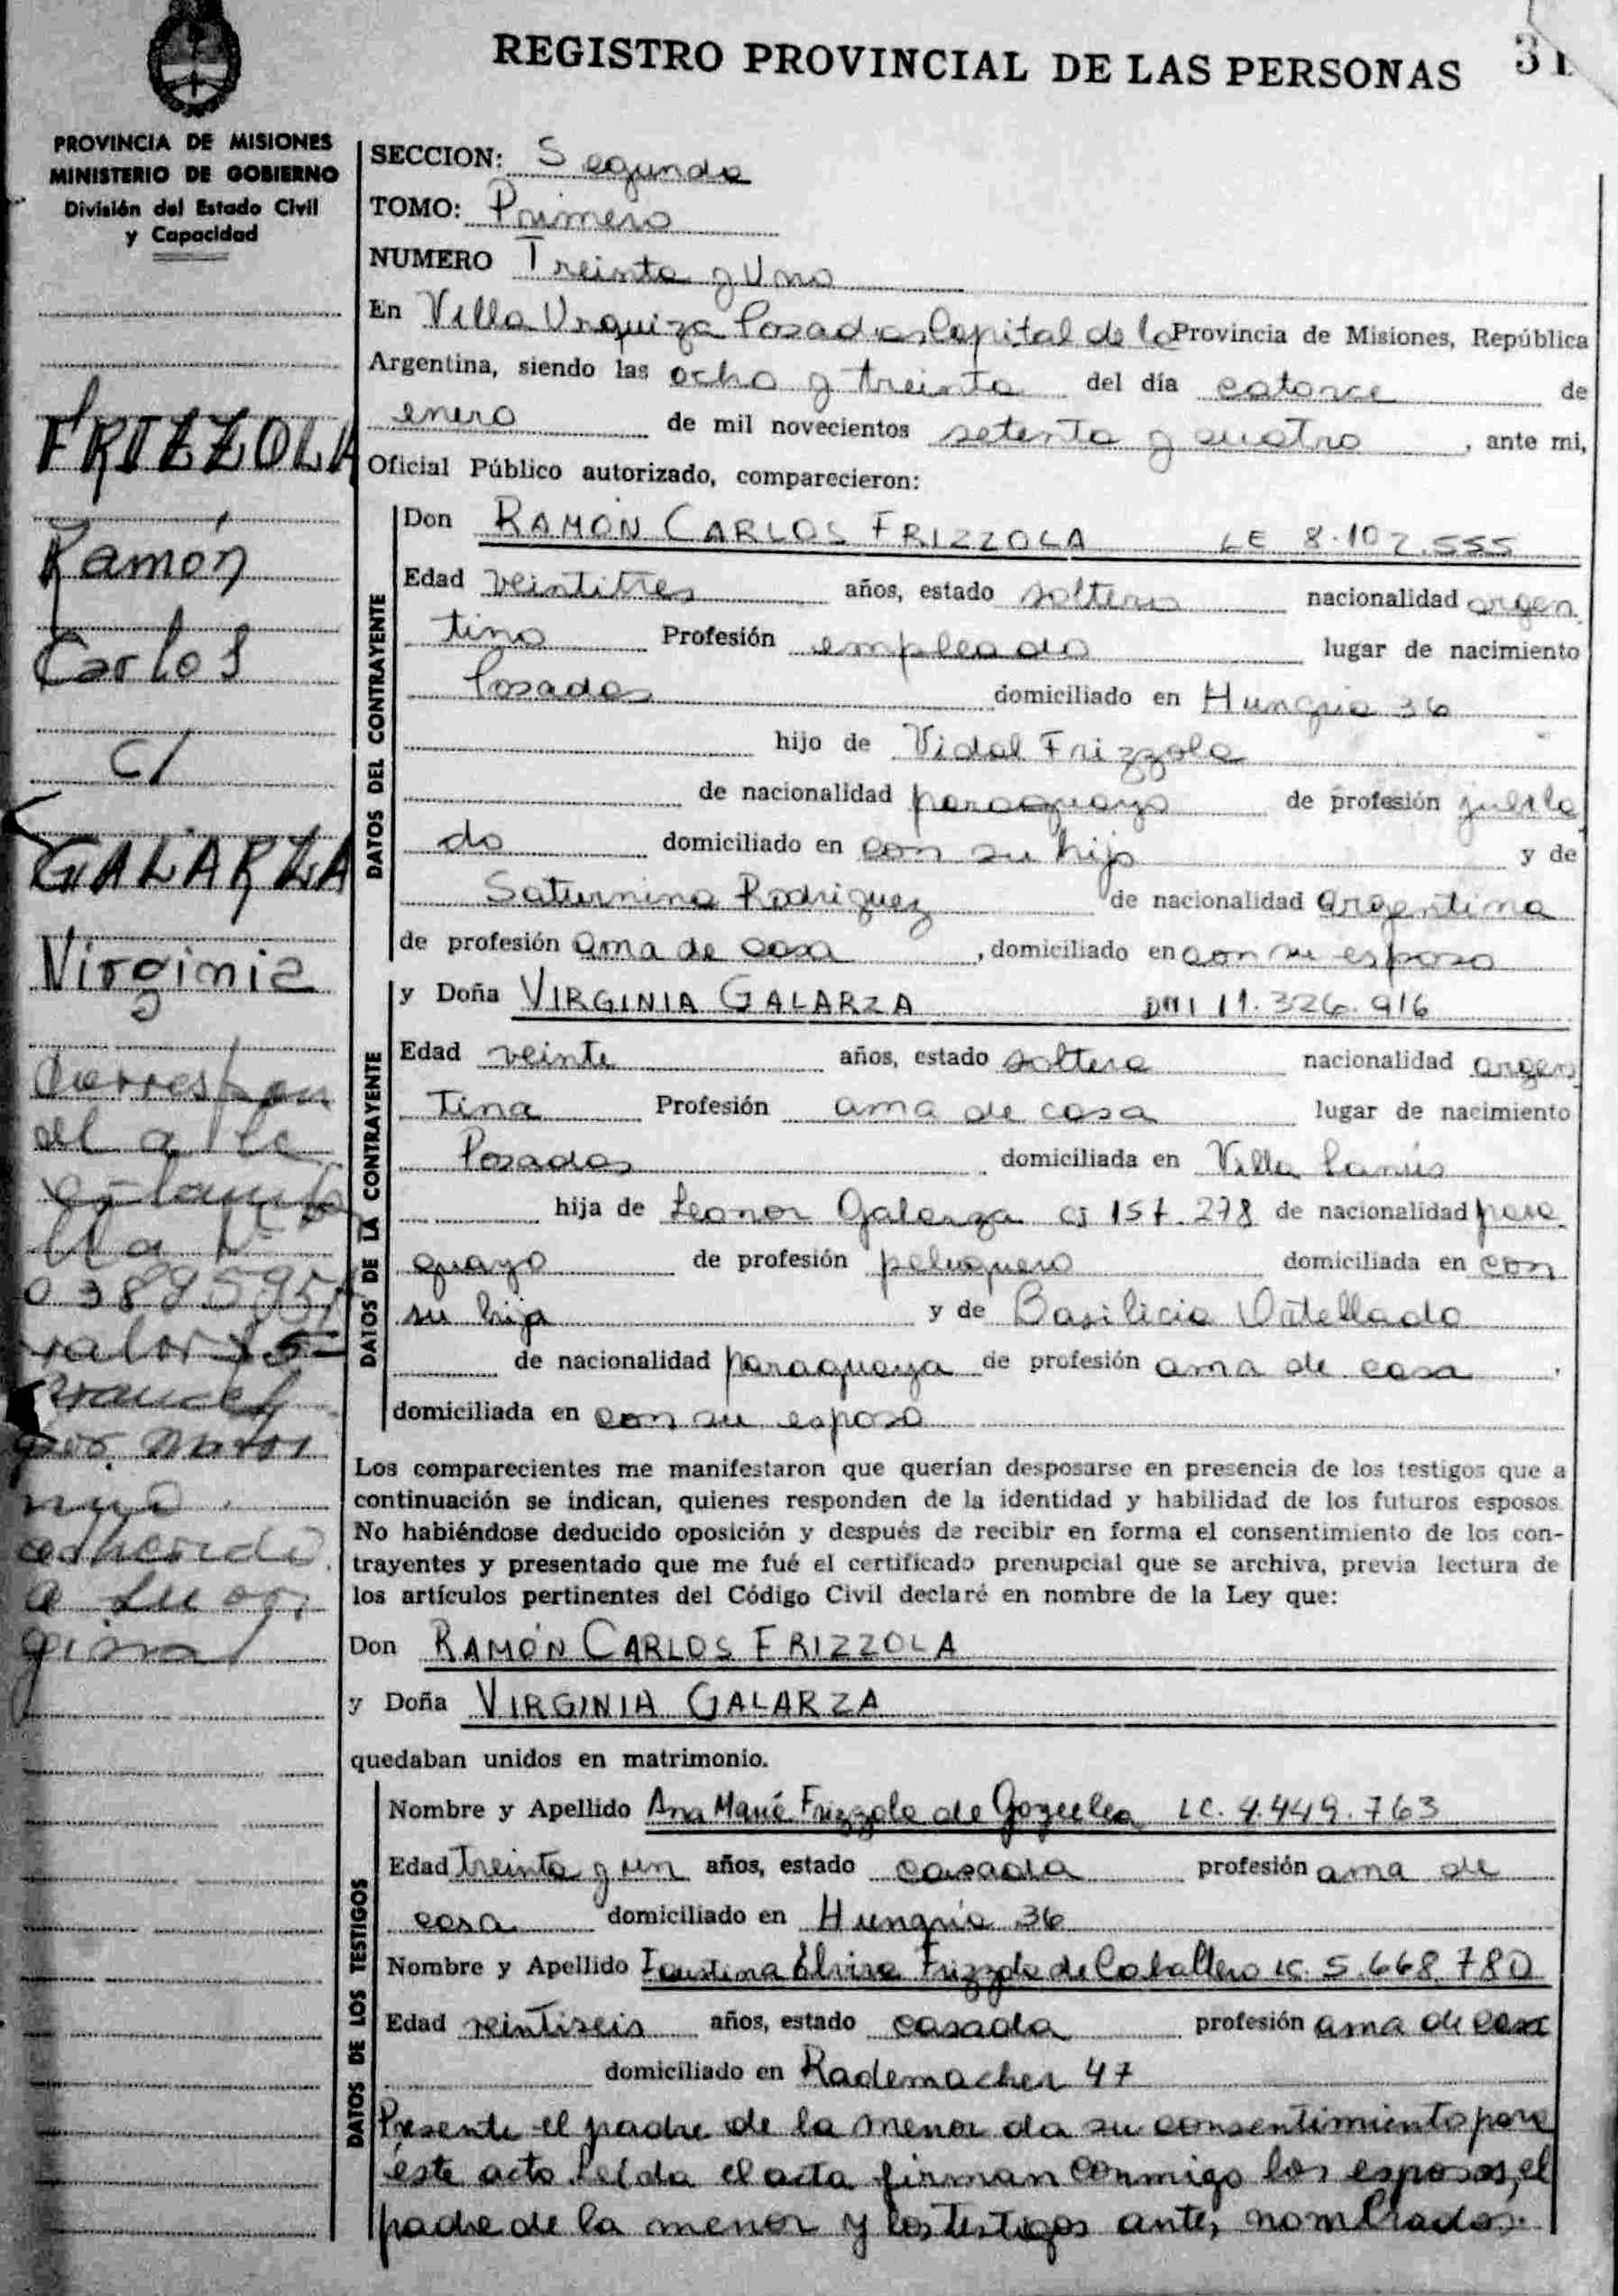 REGISTRO PROVINCIAL DE LAS PERSONAS 31
PROVINCIA DE MISIONES
MINISTERIO DE GOBIERNO
División del Estado Civil
y Capacidad
FRIZZOLA
Ramón
Carlos
c/
GALARZA
Virginia
Correspon
de a la
estampi
lla N°
valor $5-
a su ori
ginal
SECCION: Segunda
TOMO: Primero
NUMERO Treinta y Uno
En Villa Urquiza Posadas Capital de la Provincia de Misiones, República
Argentina, siendo las ocho y treinta del día catorce de
enero de mil novecientos setenta y cuatro, ante mi,
Oficial Público autorizado, comparecieron:
DATOS DEL CONTRAYENTE
Don RAMÓN CARLOS FRIZZOLA LE 8.107.555
Edad veintitres años, estado soltero nacionalidad argen
tino Profesión empleado lugar de nacimiento
Posadas domiciliado en Hungría 36
hijo de Vidal Frizzola
de nacionalidad paraguayo de profesión jubila
do domiciliado en con su hijo y de
Saturnina Rodriguez de nacionalidad argentina
de profesión ama de casa, domiciliado en con su esposo
DATOS DE LA CONTRAYENTE
y Doña VIRGINIA GALARZA DNI 11.326.916
Edad veinte años, estado soltera nacionalidad argen
tina Profesión ama de casa lugar de nacimiento
Posadas domiciliada en Villa Lanús
hija de Leonor Galarza CI 157.278 de nacionalidad para
guayo de profesión peluquero domiciliada en con
su hija y de Basilicia
de nacionalidad paraguaya de profesión ama de casa,
domiciliada en con su esposo
Los comparecientes me manifestaron que querían desposarse en presencia de los testigos que a
continuación se indican, quienes responden de la identidad y habilidad de los futuros esposos.
No habiéndose deducido oposición y después de recibir en forma el consentimiento de los con-
trayentes y presentado que me fué el certificado prenupcial que se archiva, previa lectura de
los artículos pertinentes del Código Civil declaré en nombre de la Ley que:
Don RAMÓN CARLOS FRIZZOLA
y Doña VIRGINIA GALARZA
quedaban unidos en matrimonio.
DATOS DE LOS TESTIGOS
Nombre y Apellido Ana María Frizzola de LC. 4.449.763
Edad treinta y un años, estado casada profesión ama de
casa domiciliado en Hungría 36
Nombre y Apellido Faustina Elvira Frizzola de Caballero LC. 5.668.780
Edad veintiseis años, estado casada profesión ama de casa
domiciliado en Rademacher 47
Presente el padre de la menor da su consentimiento para
éste acto. Leída el acta firman conmigo los esposos, el
padre de la menor y los testigos antes nombrados.